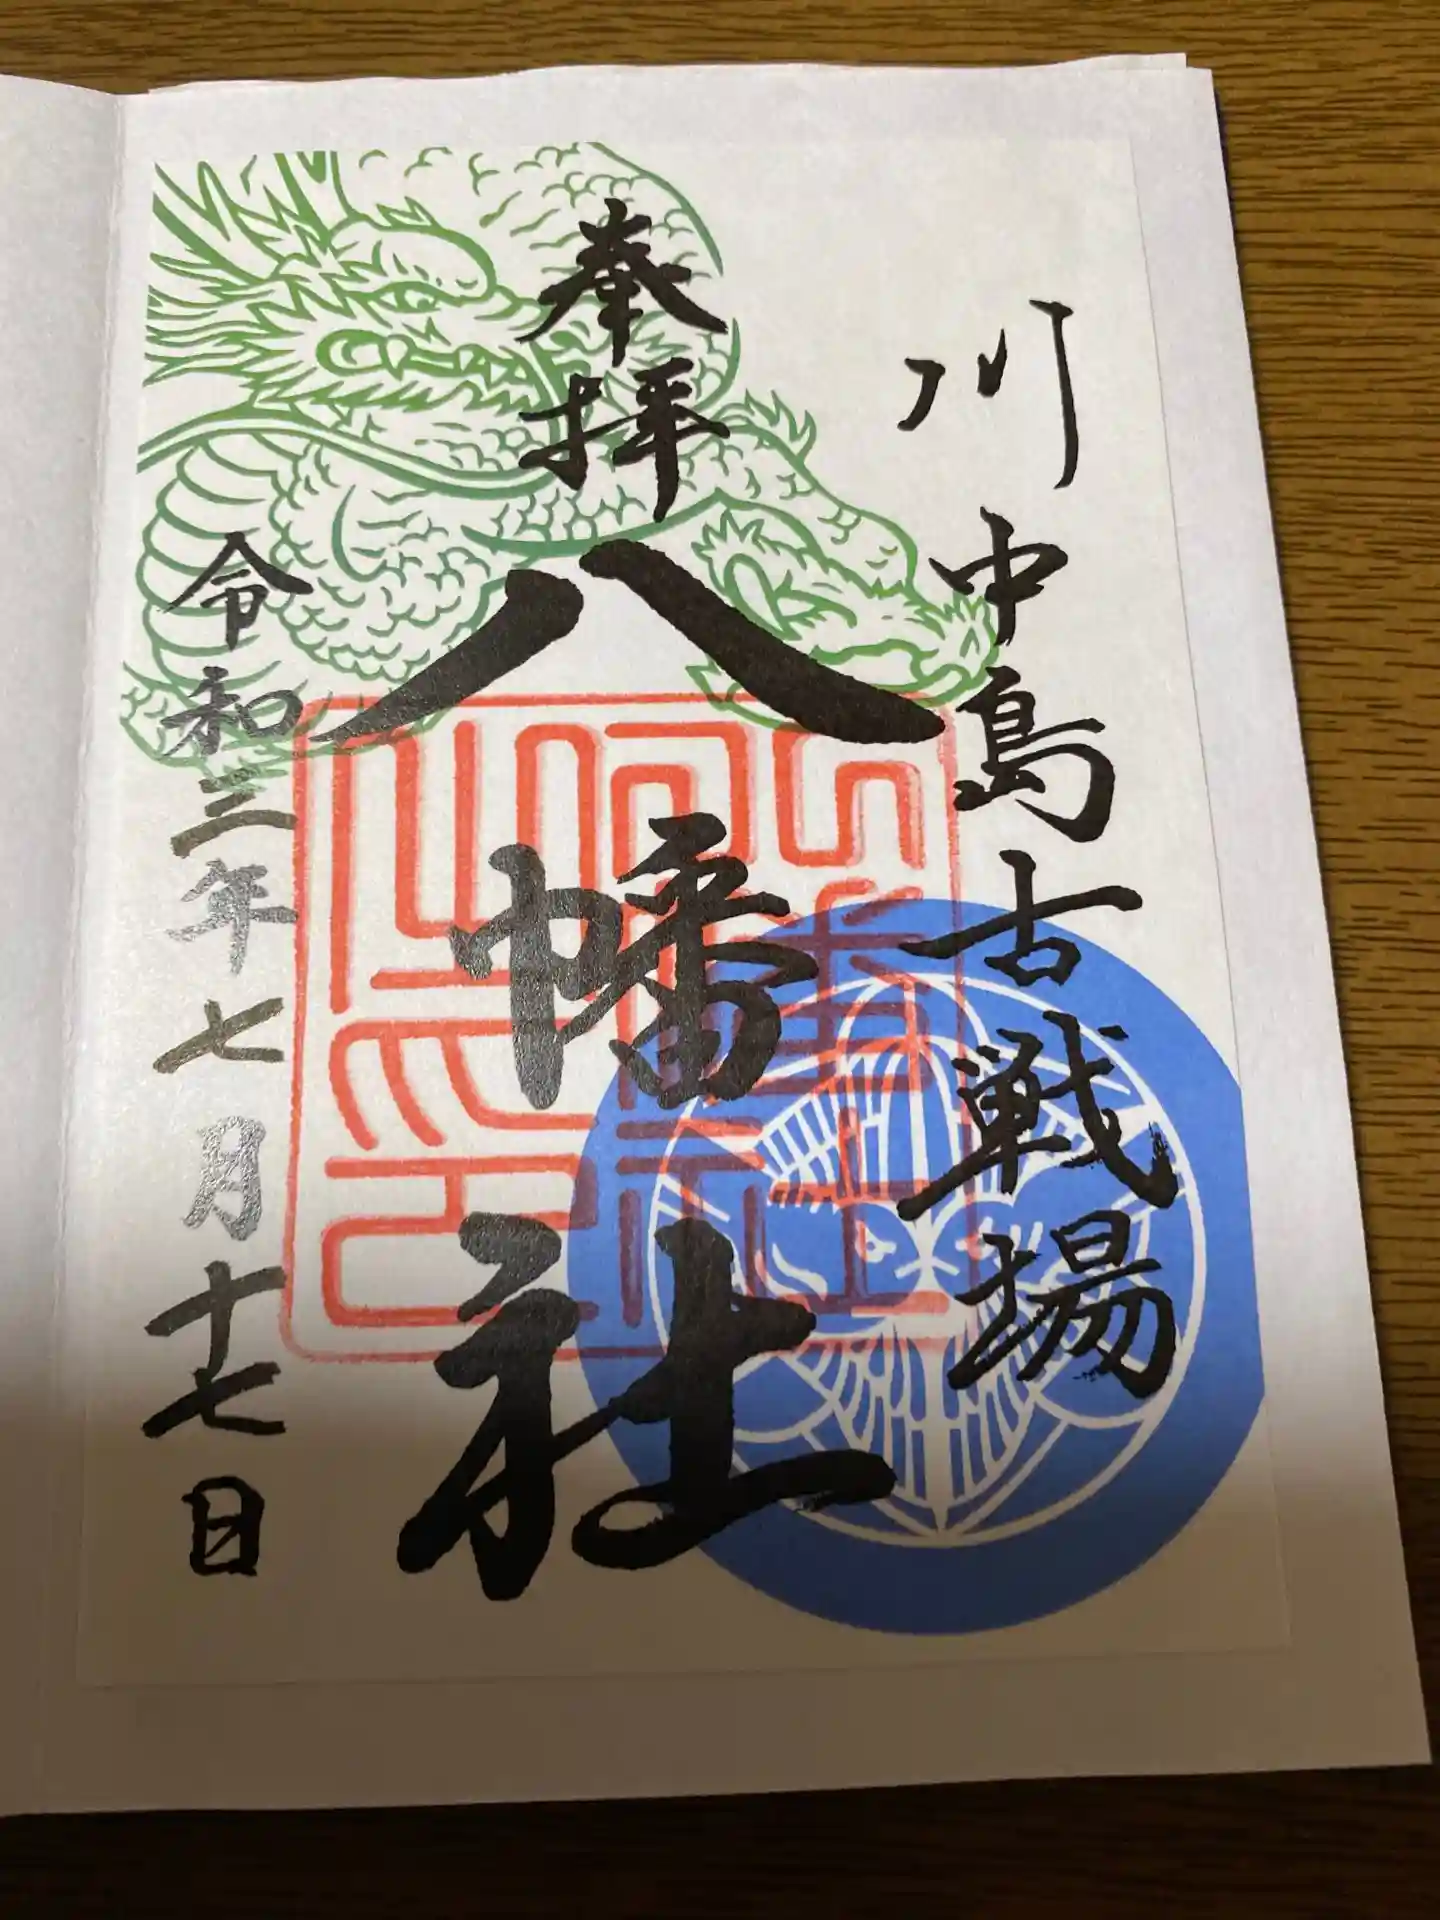 川中島古戦場
奉拝
八幡社
令和三年七月十七日